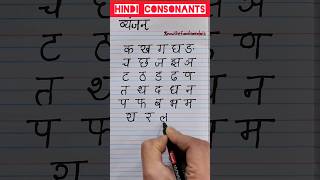 HINDI CONSONANTS
व्यंजन
क ख ग घ ङ
च छ ज झ ञ
ट ठ ड ढ ण
त थ द ध न
प फ ब भ म
य र ल